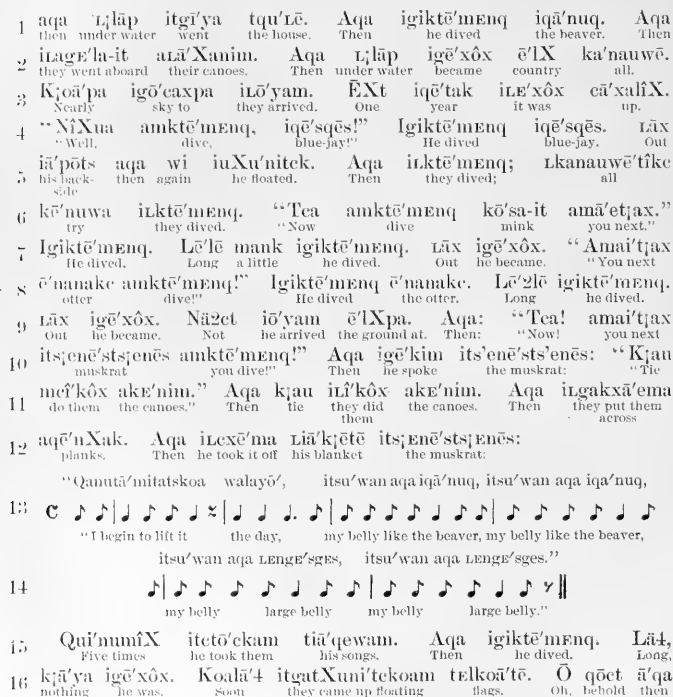 1 aqa L¡lāp itgī′ya tqu′Lē. Aqa igiktē′mEnq iqā′nuq. Aqa
then under water went the house. Then he dived the beaver. Then
2 iLagE′la-it aLā′Xanim. Aqa L¡lāp igē′xôx ē′lX ka′nauwē.
they went aboard their canoes. Then under water became country all.
3 K¡oā′pa igō′caxpa iLō′yam. ĒXt iqē′tak iLE′xôx cā′xalîX.
Nearly sky to they arrived. One year it was up.
4 “NîXua amktē′mEnq, iqē′sqēs!” Igiktē′mEnq iqē′sqēs. Lāx
“Well, dive, blue-jay!” He dived blue-jay. Out
5 iā′pōts aqa wi iuXu′nitck. Aqa iLktē′mEnq; Lkanauwē′tîkc
his back-side then again he floated. Then they dived; all
6 kē′nuwa iLktē′mEnq. “Tca amktē′mEnq kō′sa-it amā′et¡ax.”
try they dived. “Now dive mink you next.”
7 Igiktē′mEnq. Lē′lē mank igiktē′mEnq. Lāx igē′xôx. “Amai′t¡ax
He dived. Long a little he dived. Out he became. “You next
8 ē′nanakc amktē′mEnq!” Igiktē′mEnq ē′nanakc. Lē′2lē igiktē′mEnq.
otter dive!” He dived the otter. Long he dived.
9 Lāx igē′xôx. Nä2ct iō′yam ē′lXpa. Aqa: “Tca! amai′t¡ax
Out he became. Not he arrived the ground at. Then: “Now! you next
10 its¡enē′sts¡enēs amktē′mEnq!” Aqa igē′kim its’enē′sts’enēs: “K¡au
muskrat you dive!” Then he spoke the muskrat: “Tie
11 mcî′kôx akE′nim.” Aqa k¡au iLî′kôx akE′nim. Aqa iLgakxā′ema
do them the canoes.” Then tie they did them the canoes. Then they put them across
12 aqē′nXak. Aqa iLcxē′ma Liā′k¡ētē its¡Enē′sts¡Enēs:
planks. Then he took it off his blanket the muskrat:
“Qanutā′mitatskoa walayō′, itsu′wan aqa iqā′nuq, itsu′wan aqa iqa′nuq,
13
“I begin to lift it the day, my belly like the beaver, my belly like the beaver,
itsu′wan aqa LEngE′sgEs, itsu′wan aqa LEngE′sges.”
14
my belly large belly my belly large belly.”
15 Qui′numîX itctō′ckam tiā′qewam. Aqa igiktē′mEnq. Lä4,
Five times he took them his songs. Then he dived. Long,
16 k¡ā′ya igē′xôx. Koalā′4 itgatXuni′tckoam tElkoā′tē. Ō qōct ā′qa
nothing he was. Soon they came up floating flags. Oh, behold then